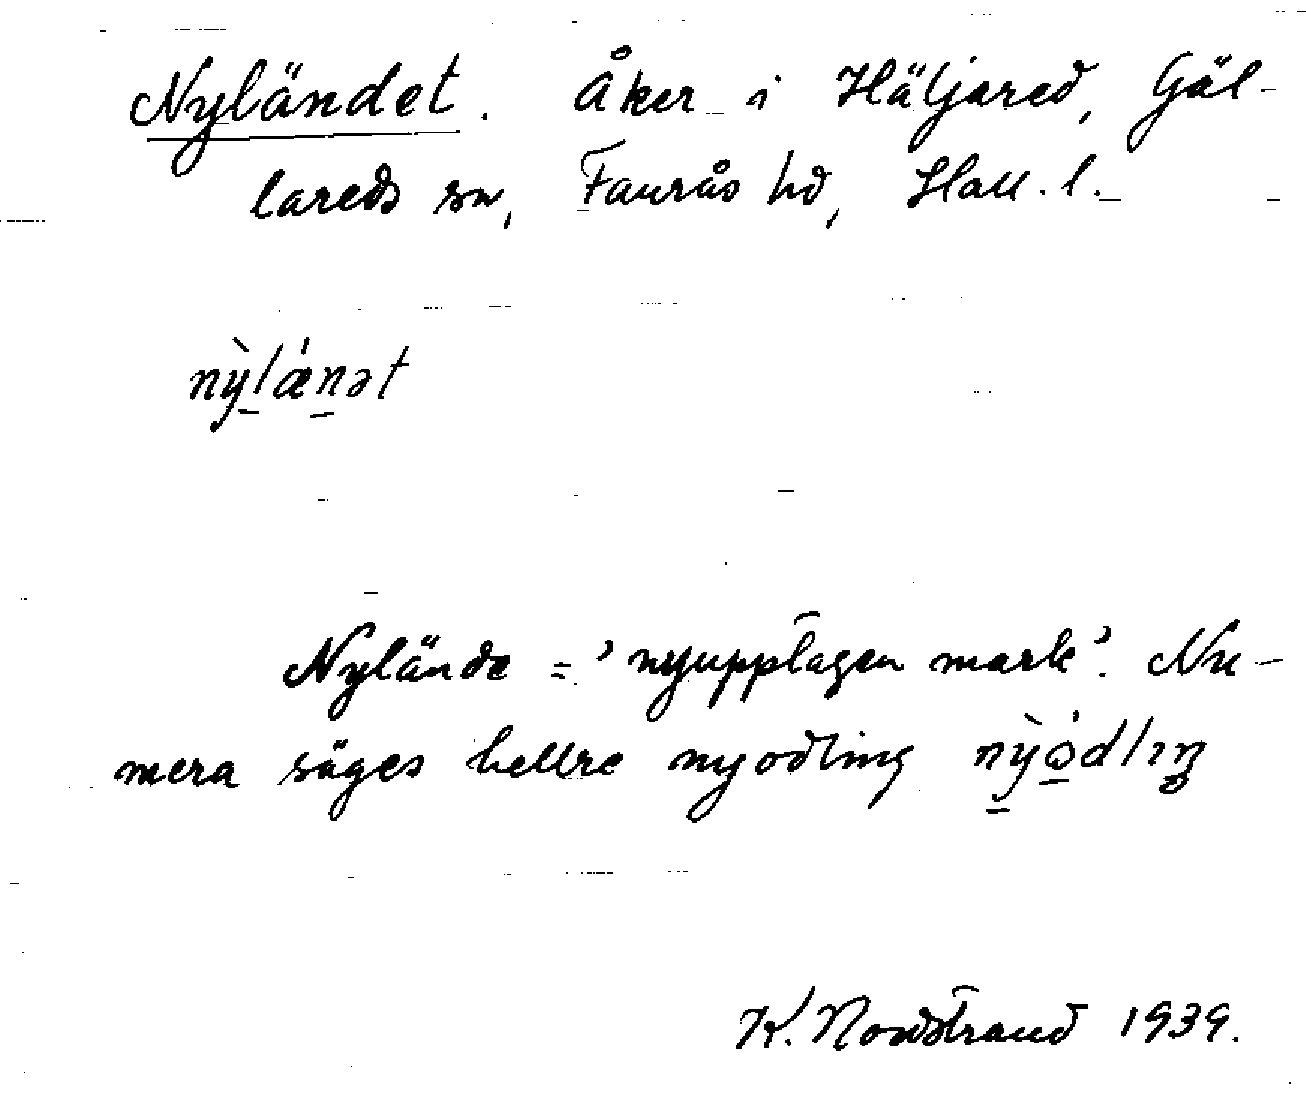 Nyländet. Åker i Häljared, Gäl-
lareds sn, Faurås hd, Hall. l.
nỳlǽnət
Nylände = 'nyupptagen mark'. Nu-
mera säges hellre nyodling nỳȯ̲dlıŋ
K. Nordstrand 1939.